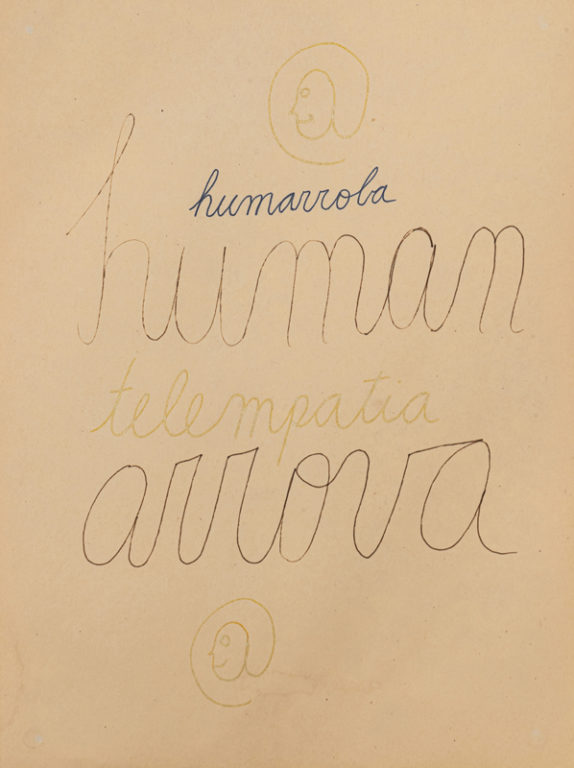 @
humarroba
human
telempatia
arrova
@